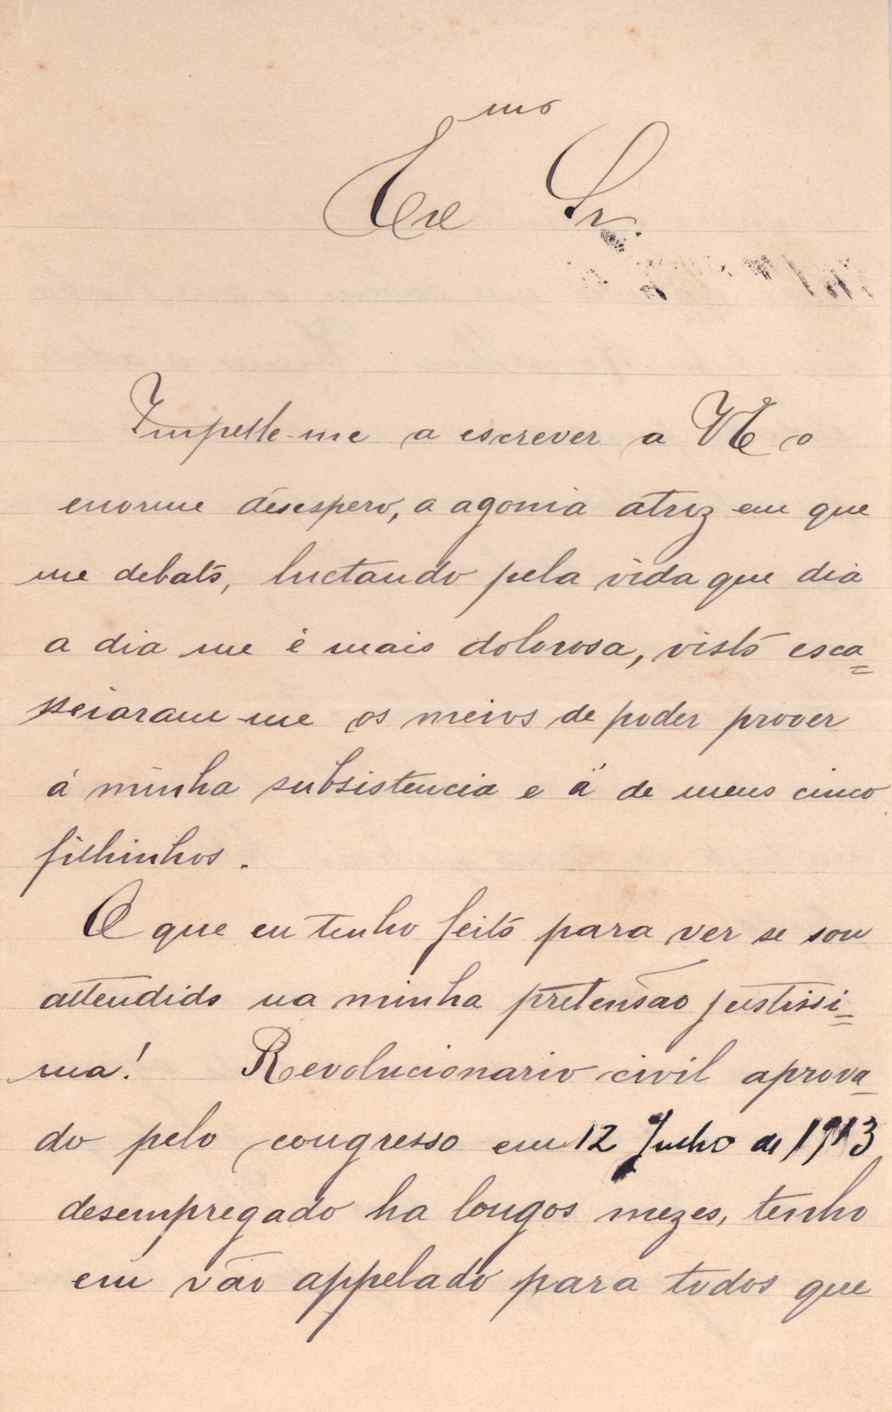 Ex.mo Sr.
Impelle-me a escrever a V Ex o
enorme desespero, a agonia atroz em que
me debato, luctando pela vida que dia
a dia me é mais dolorosa, visto esca=
sseiaram-me os meios de poder prover
á minha subsistencia e á de meus cinco
filhinhos.
O que eu tenho feito para ver se sou
attendido na minha pretensão justissi=
ma! Revolucionario civil aprova-
do pelo congresso em 12 Julho de 1913
desempregado ha longos mezes, tenho
em vão appelado para todos que